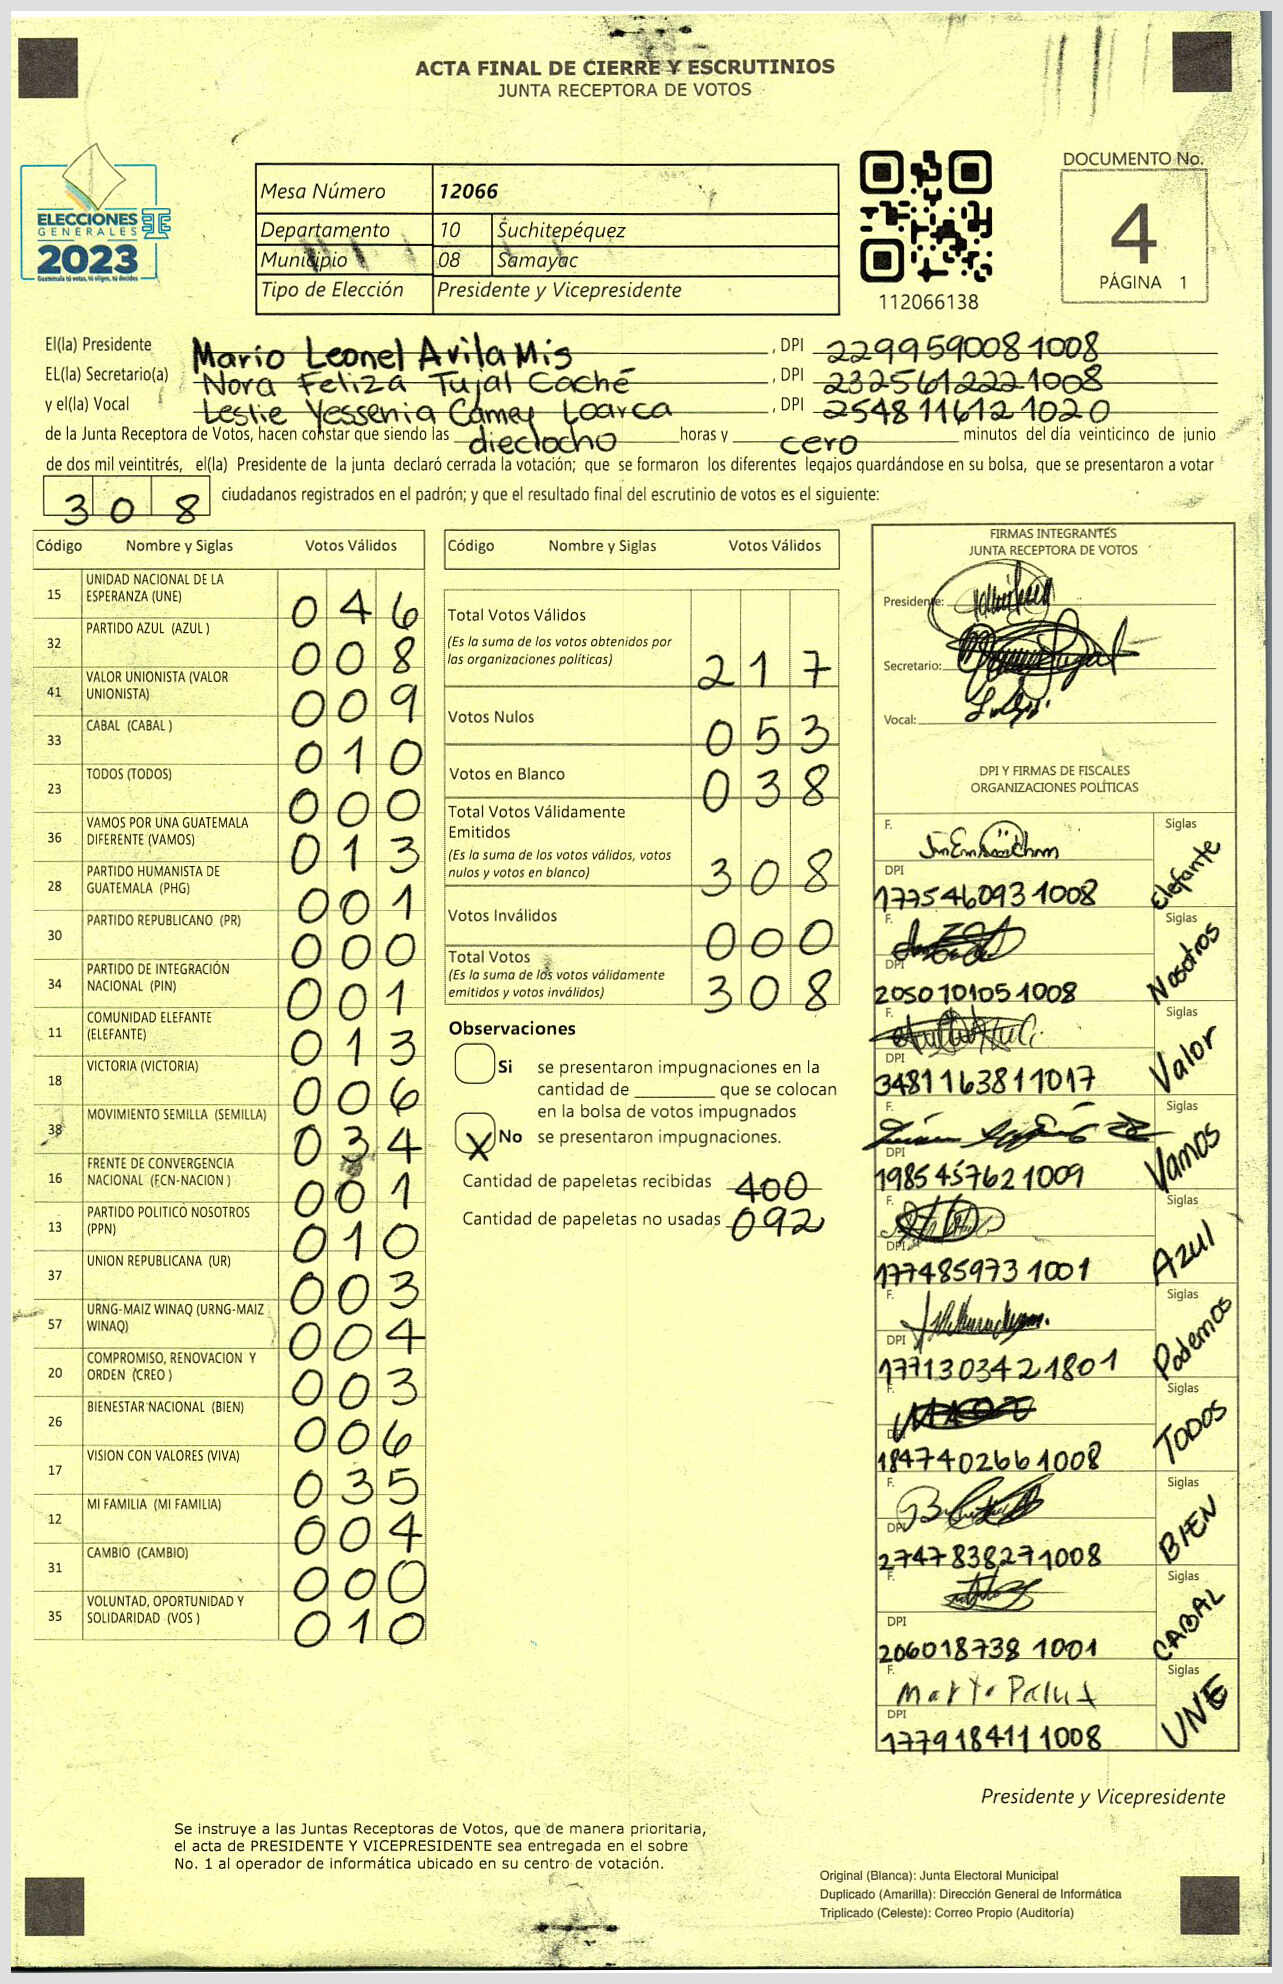 ACTA FINAL DE CIERRE Y ESCRUTINIOS
JUNTA RECEPTORA DE VOTOS
ELECCIONES
GENERALES
2023
Guatemala tú votas, tú eliges, tú decides
Mesa Número 12066
Departamento 10 Suchitepéquez
Municipio 08 Samayac
Tipo de Elección Presidente y Vicepresidente
112066138
DOCUMENTO No.
4
PÁGINA 1
El(la) Presidente Mario Leonel Avila Mis, DPI 2299590081008
EL(la) Secretario(a) Nora Feliza Tujal Caché, DPI 2325612221008
y el(la) Vocal Leslie Yessenia Camey Loarca, DPI 2548116121020
de la Junta Receptora de Votos, hacen constar que siendo las dieciocho horas y cero minutos del día veinticinco de junio
de dos mil veintitrés, el(la) Presidente de la junta declaró cerrada la votación; que se formaron los diferentes legajos guardándose en su bolsa, que se presentaron a votar
308 ciudadanos registrados en el padrón; y que el resultado final del escrutinio de votos es el siguiente:
Código Nombre y Siglas Votos Válidos
15 UNIDAD NACIONAL DE LA ESPERANZA (UNE) 046
32 PARTIDO AZUL (AZUL ) 008
41 VALOR UNIONISTA (VALOR UNIONISTA) 009
33 CABAL (CABAL ) 010
23 TODOS (TODOS) 000
36 VAMOS POR UNA GUATEMALA DIFERENTE (VAMOS) 013
28 PARTIDO HUMANISTA DE GUATEMALA (PHG) 001
30 PARTIDO REPUBLICANO (PR) 000
34 PARTIDO DE INTEGRACIÓN NACIONAL (PIN) 001
11 COMUNIDAD ELEFANTE (ELEFANTE) 013
18 VICTORIA (VICTORIA) 006
38 MOVIMIENTO SEMILLA (SEMILLA) 034
16 FRENTE DE CONVERGENCIA NACIONAL (FCN-NACION ) 001
13 PARTIDO POLITICO NOSOTROS (PPN) 010
37 UNION REPUBLICANA (UR) 003
57 URNG-MAIZ WINAQ (URNG-MAIZ WINAQ) 004
20 COMPROMISO, RENOVACION Y ORDEN (CREO ) 003
26 BIENESTAR NACIONAL (BIEN) 006
17 VISION CON VALORES (VIVA) 035
12 MI FAMILIA (MI FAMILIA) 004
31 CAMBIO (CAMBIO) 000
35 VOLUNTAD, OPORTUNIDAD Y SOLIDARIDAD (VOS ) 010
Código Nombre y Siglas Votos Válidos
Total Votos Válidos
(Es la suma de los votos obtenidos por
las organizaciones políticas) 217
Votos Nulos 053
Votos en Blanco 038
Total Votos Válidamente
Emitidos
(Es la suma de los votos válidos, votos
nulos y votos en blanco) 308
Votos Inválidos 000
Total Votos
(Es la suma de los votos válidamente
emitidos y votos inválidos) 308
Observaciones
Si se presentaron impugnaciones en la
cantidad de ________ que se colocan
en la bolsa de votos impugnados
X No se presentaron impugnaciones.
Cantidad de papeletas recibidas 400
Cantidad de papeletas no usadas 092
FIRMAS INTEGRANTES
JUNTA RECEPTORA DE VOTOS
Presidente:
Secretario:
Vocal:
DPI Y FIRMAS DE FISCALES
ORGANIZACIONES POLÍTICAS
F. Siglas Elefante
DPI
1775460931008
F. Siglas Nosotros
DPI
2050701051008
F. Siglas Valor
DPI
3481163811017
F. Siglas Vamos
DPI
1985457621009
F. Siglas Azul
DPI
1774859731001
F. Siglas Podemos
DPI
1771303421801
F. Siglas TODOS
DPI
1847402661008
F. Siglas BIEN
DPI
2747838271008
F. Siglas CABAL
DPI
2060187381001
F. Siglas UNE
DPI
1779184111008
Presidente y Vicepresidente
Se instruye a las Juntas Receptoras de Votos, que de manera prioritaria,
el acta de PRESIDENTE Y VICEPRESIDENTE sea entregada en el sobre
No. 1 al operador de informática ubicado en su centro de votación.
Original (Blanca): Junta Electoral Municipal
Duplicado (Amarilla): Dirección General de Informática
Triplicado (Celeste): Correo Propio (Auditoría)